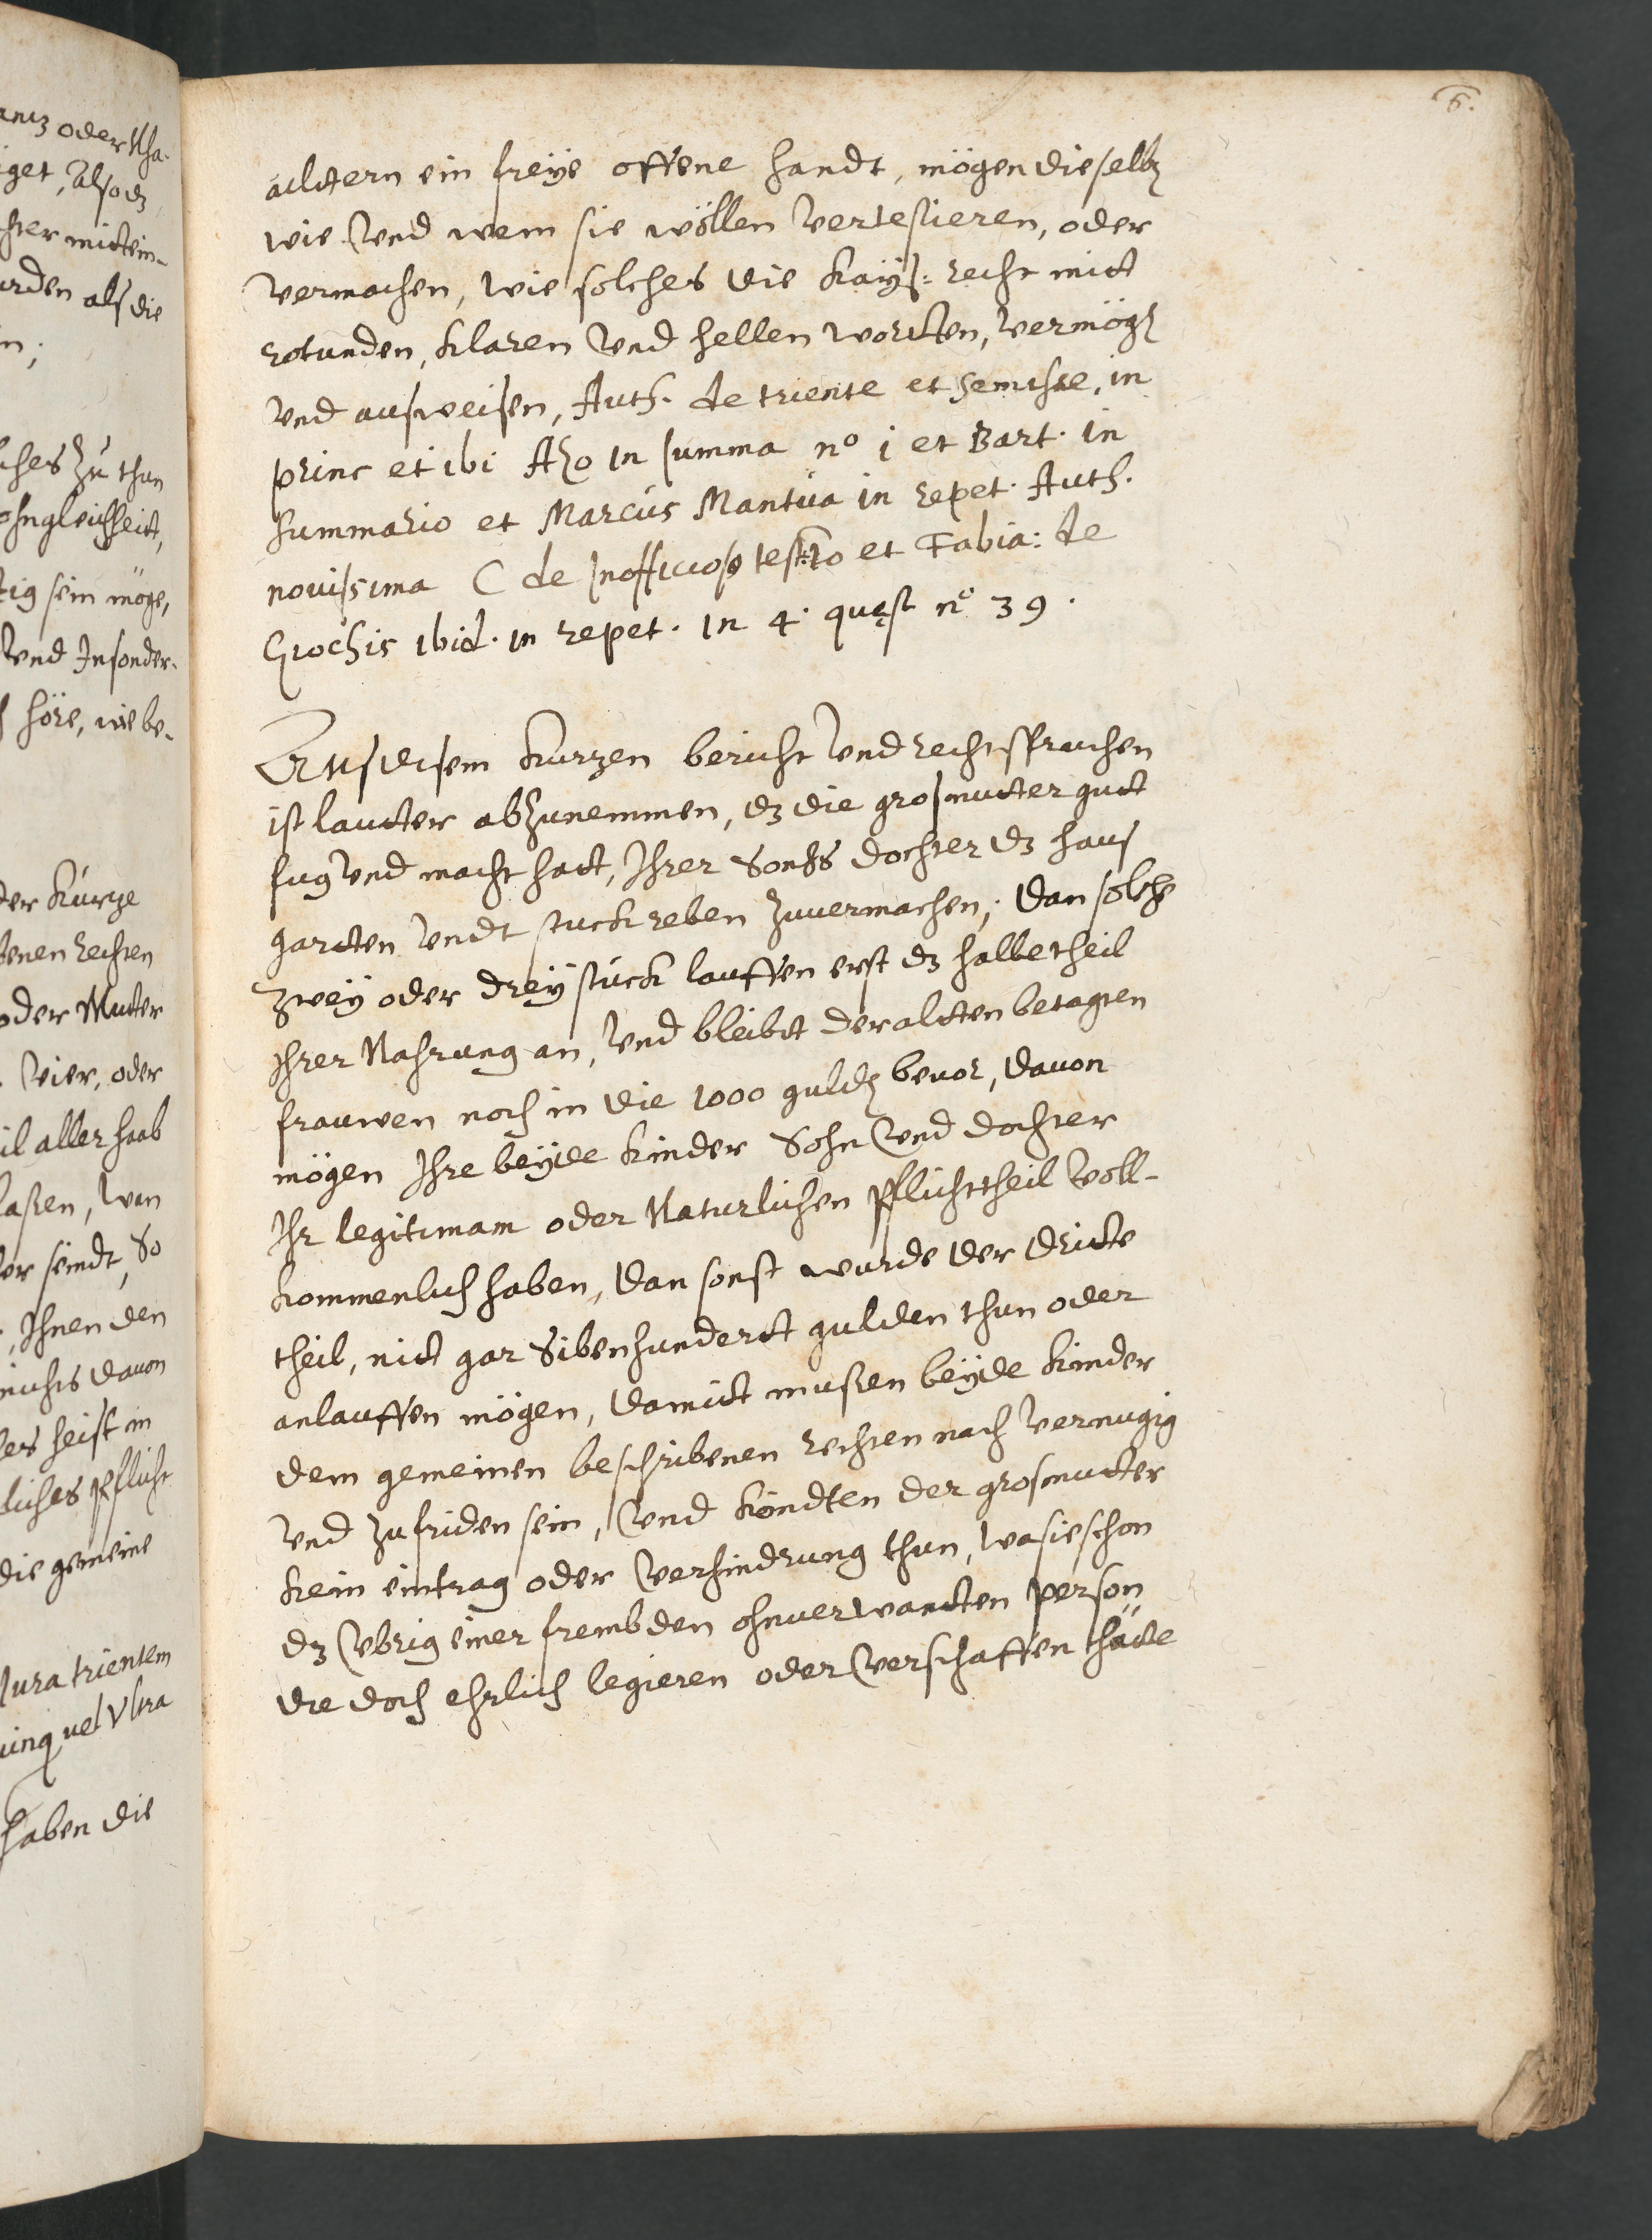 antz oder Nha-
iget, Also dz
hter mittein-
urden als die
n;
ches Zu thun
ohngleichheit,
tig sein möge,
Vnd Insonder-
höre, wie be-
der Kürtze
benen Rechten
oder Mutter
Vier, oder
il aller haab
laßen, Wan
der seindt, So
, Ihnen den
nichts dauon
ses heist in
liches Pflicht
die gemeine
Iura trientem
uinq vel Vltra
haben die
6.
älltern ein freÿe offene handt, mögen dieselbe
wie Vnd wem sie wöllen Vertestieren, oder
Vermachen, Wie solches die Kaÿs: Recht mitt
rotunden, Klaren Vnd hellen wortten, Vermöge
Vnd ausweisen, Auth. de triente et semisse, in
princ et ibi Azo in summa no 1 et Bart. in
summario et Marcus Mantua in repet. Auth.
nouissima C de Inofficioso testto et Fabia: de
Giochis ibid. in repet. in 4. quæst no 39.
Aus disem Kurtzen bericht Vnd rechtssprüchen
ist lautter abzunemmen, dz die grosmutter gutt
fug Vnd macht hatt, Ihrer Sohns dochter dz haus
gartten Vndt stuck reben zuuermachen; dan solche
zweÿ oder dreÿ stuck lauffen erst dz halbe theil
Ihrer Nahrung an, Vnd bleibt der altten betagten
frauwen noch in die 1000 gulde beuor, dauon
mögen Ihre beÿde Kinder Sohn Vnd dochter
Ihr legitimam oder Naturlichen Pflichttheil Voll-
kommenlich haben, dan sonst wurde der dritte
theil, nitt gar Sibenhundertt gulden thun oder
anlauffen mögen, damitt mußen beÿde Kinder
dem gemeinen beschribenen rechten nach Vernugig
Vnd zufriden sein, Vnd Köndten der grosmutter
Kein eintrag oder Verhindrung thun, wa sie schon
dz Vbrig einer frembden ohnuerwandten person
die doch ehrlich legieren oder Verschaffen thätte